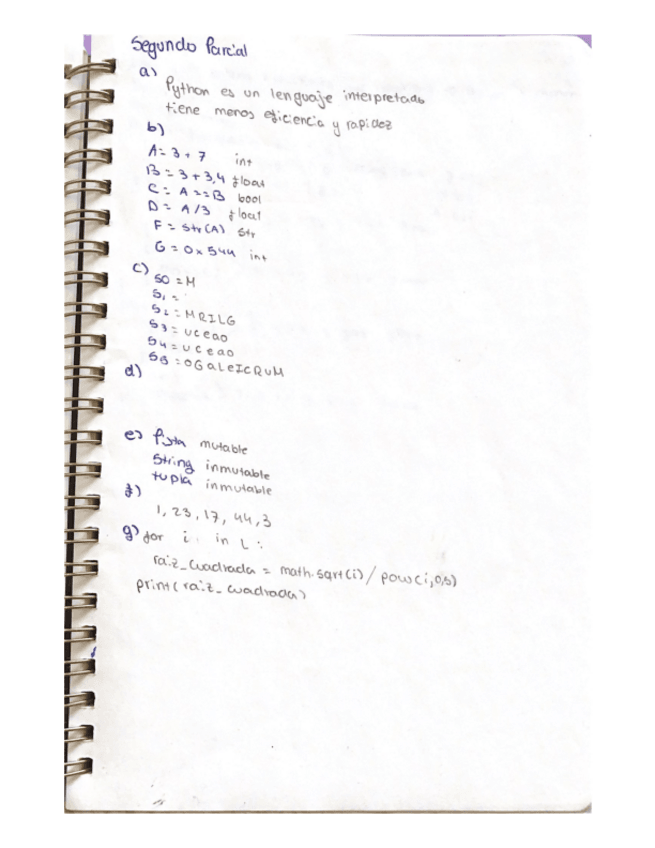 Segundo Parcial
a)
Python es un lenguaje interpretado
tiene menos eficiencia y rapidez
b)
A = 3 + 7 int
B = 3 + 3,4 float
C = A == B bool
D = A / 3 float
F = str(A) str
G = 0x544 int
c)
S0 = M
S1 =
S2 = MRILG
S3 = uceao
S4 = uceao
S5 = OGaLeIcRuM
d)
e) lista mutable
String inmutable
tupla inmutable
f)
1, 23, 17, 44, 3
g) for i in L:
raiz_cuadrada = math.sqrt(i) / pow(i,0,5)
print(raiz_cuadrada)